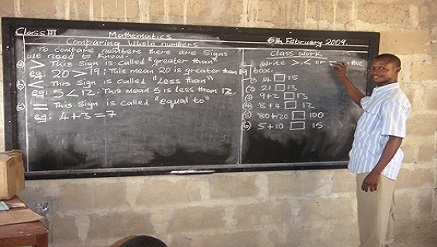 Class III
Mathematics
6th February 2009
Comparing Whole numbers
To compare numbers there are Signs
we need to know.
a) > This Sign is called "greater than"
eg: 20 > 19: This mean 20 is greater than 19
b) < This Sign is called "Less than"
eg: 5 < 12: This mean 5 is less than 12.
c) = This Sign is called "equal to"
eg: 4 + 3 = 7
Class Work
Write >, < or = in the
box
14 □ 15
21 □ 13
9 + 2 □ 13
8 + 4 □ 12
80 + 20 □ 100
5 + 10 □ 15